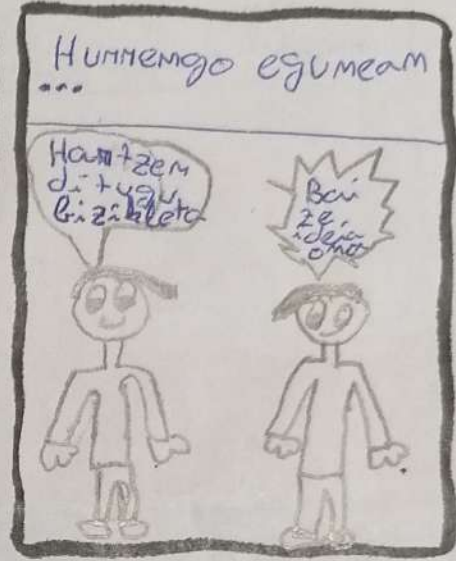 Hurrengo egunean
...
Hartzen
ditugu
bizikleta
Bai
ze
ideia
ona